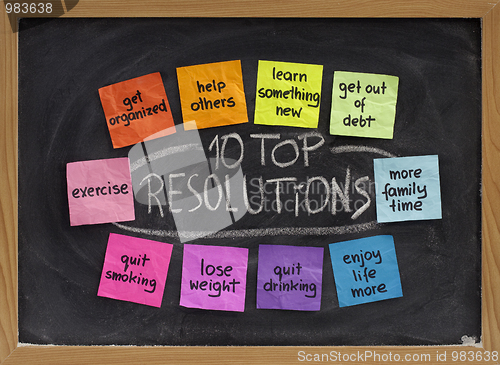 # 983638
get
organized
help
others
learn
something
new
get out
of
debt
10 TOP
RESOLUTIONS
exercise
more
family
time
quit
smoking
lose
weight
quit
drinking
enjoy
life
more
Stanislaw Pytel / Crestock.com
# 983638